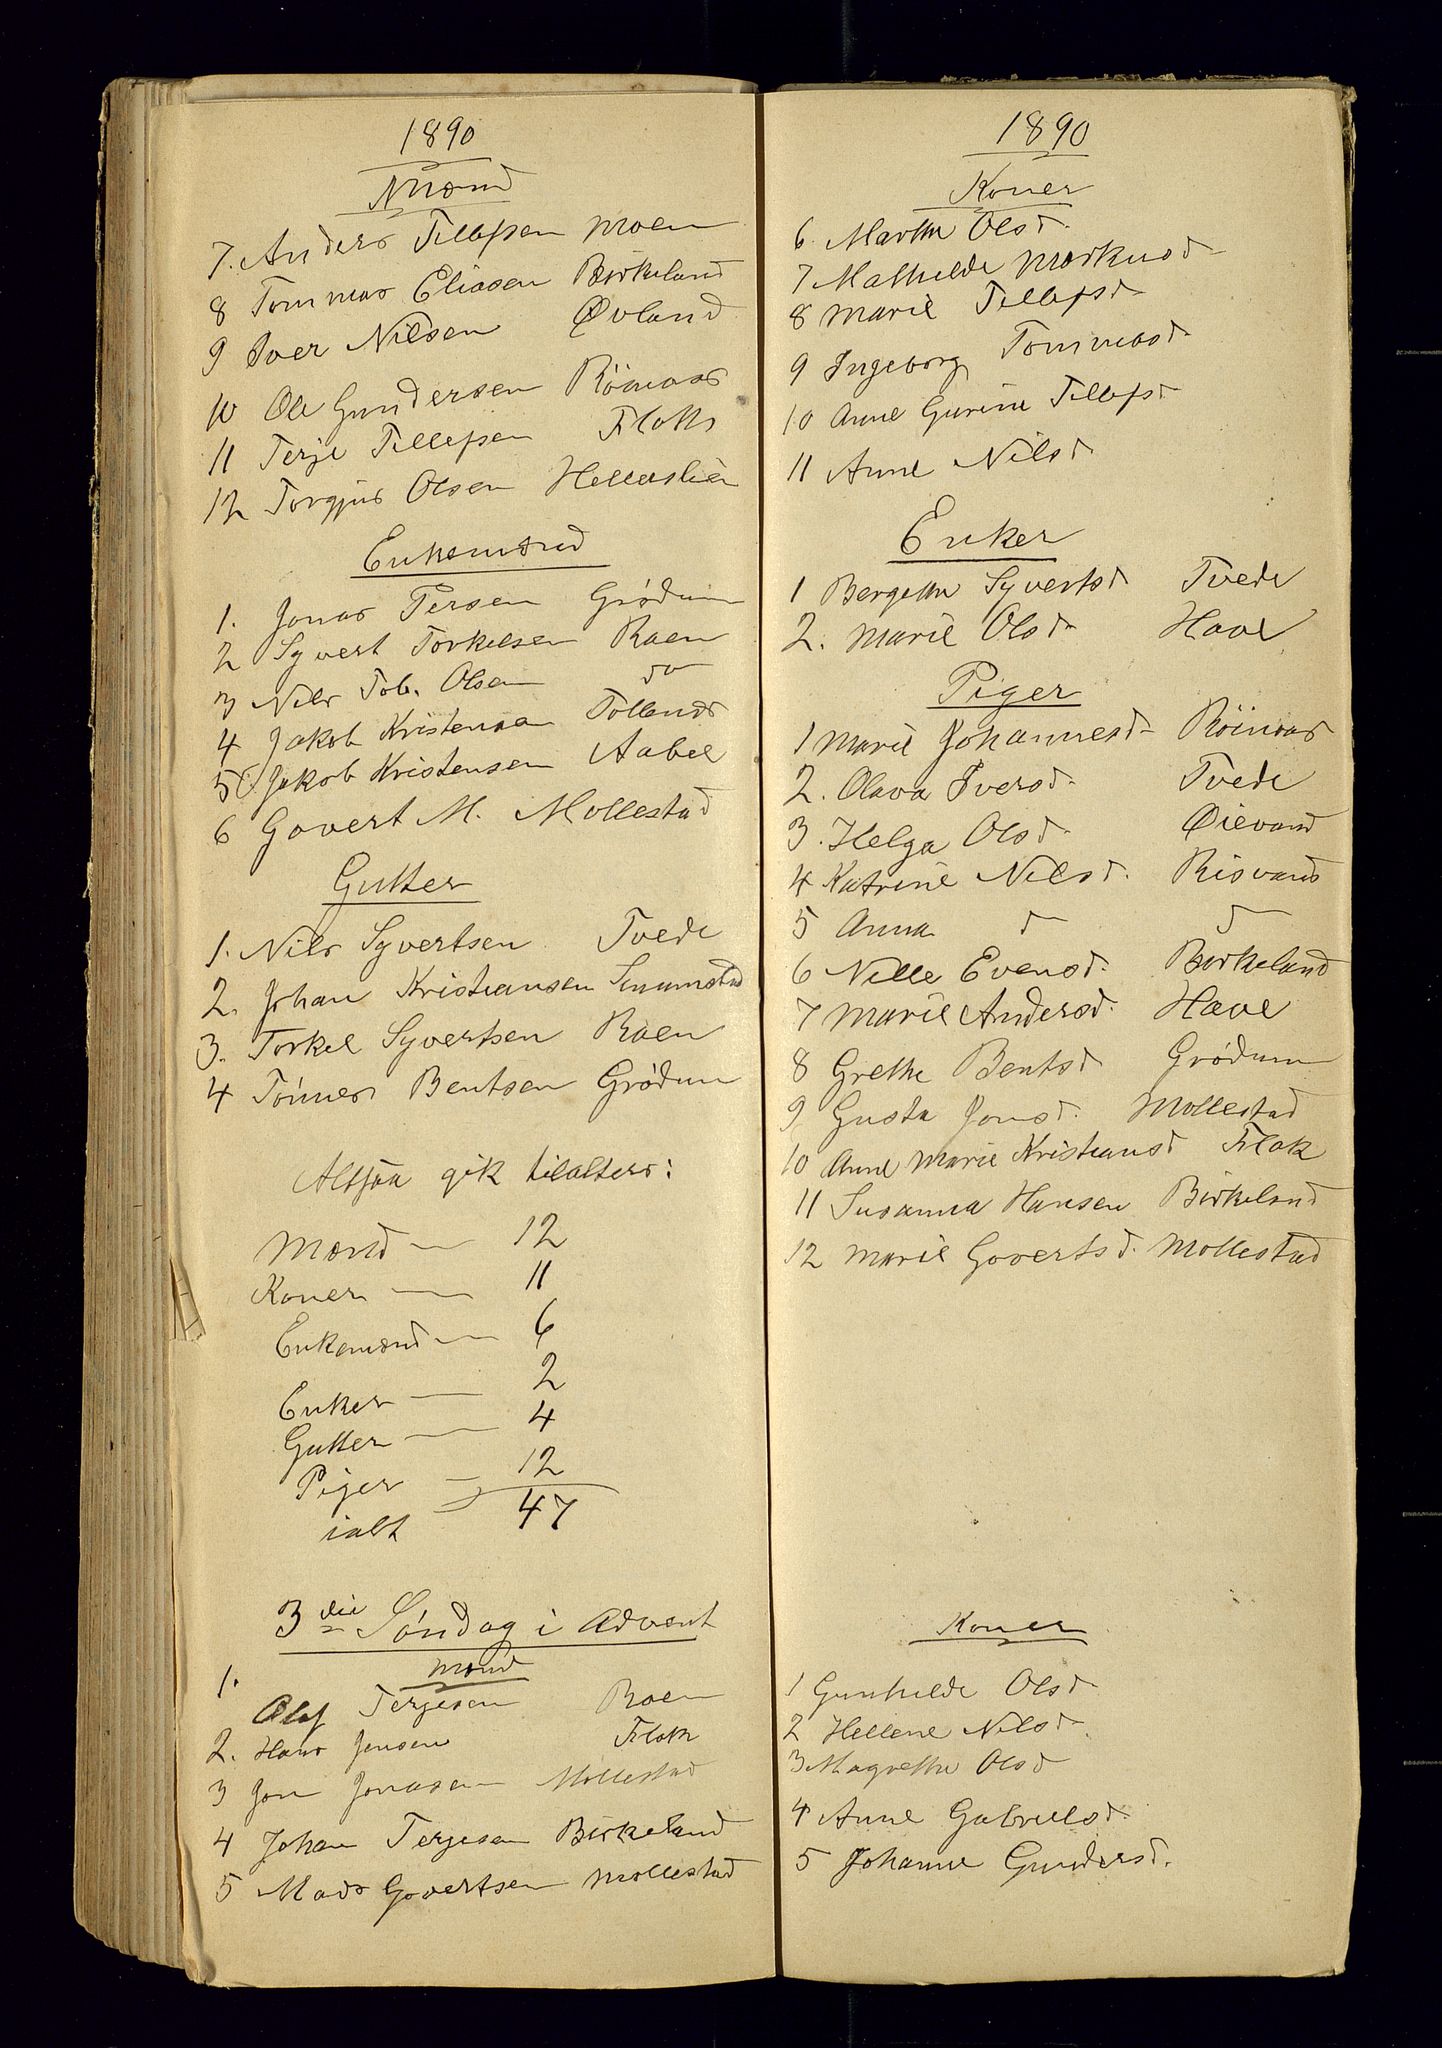 1890
Mænd
7. Anders Tellefsen Moen
8 Tommas Eliasen Birkeland
9 Iver Nilsen Øvland
10 Ole Gundersen Röinaas
11 Terje Tellefsen Flak
12 Torgjus Olsen Hellerslien
Enkemænd
1. Jonas Persen Grødum
2 Syvert Torkelsen Raen
3 Nils Tob. Olsen do
4 Jakob Kristensen
5 Jakob Kristensen Aabel
6 Govert M. Mollestad
Gutter
1. Nils Syvertsen Tvede
2. Johan Kristiansen
3. Torkel Syvertsen Raen
4 Tönnes Bentsen Grødum
Altsaa gik tilalters:
Mænd — 12
Koner — 11
Enkemænd — 6
Enker — 2
Gutter — 4
Piger — 12
ialt 47
3die Søndag i Advent
Mænd
1. Olaf Terjesen Raen
2. Hans Jensen Flak
3 Jon Jonasen Mollestad
4 Johan Terjesen Birkeland
5 Mads Govertsen Mollestad
1890
Koner
6. Marthe Olsd.
7 Mathilde Markusd.
8 Marie Tellefsd.
9 Ingeborg Tommasd.
10 Anne Gurine Tellefsd
11 Anne Nilsd.
Enker
1 Bergethe Syvertsd Tvede
2. Marie Olsd. Have
Piger
1 Marie Johannesd. Röinaas
2. Olava Iversd. Tvede
3. Helga Olsd. Øievand
4 Katrine Nilsd. Risvand
5 Anna d d
6 Nille Evensd. Birkeland
7 Marie Andersd. Have
8 Grethe Bentsd Grødum
9 Gusta Jonsd. Mollestad
10 Anne Marie Kristiansd Flak
11 Susanna Hansen Birkeland
12 Marie Govertsd. Mollestad
Koner
1 Gunhilde Olsd.
2 Hellene Nilsd.
3 Magrethe Olsd
4 Anne Gabrielsd.
5 Johanne Gundersd.